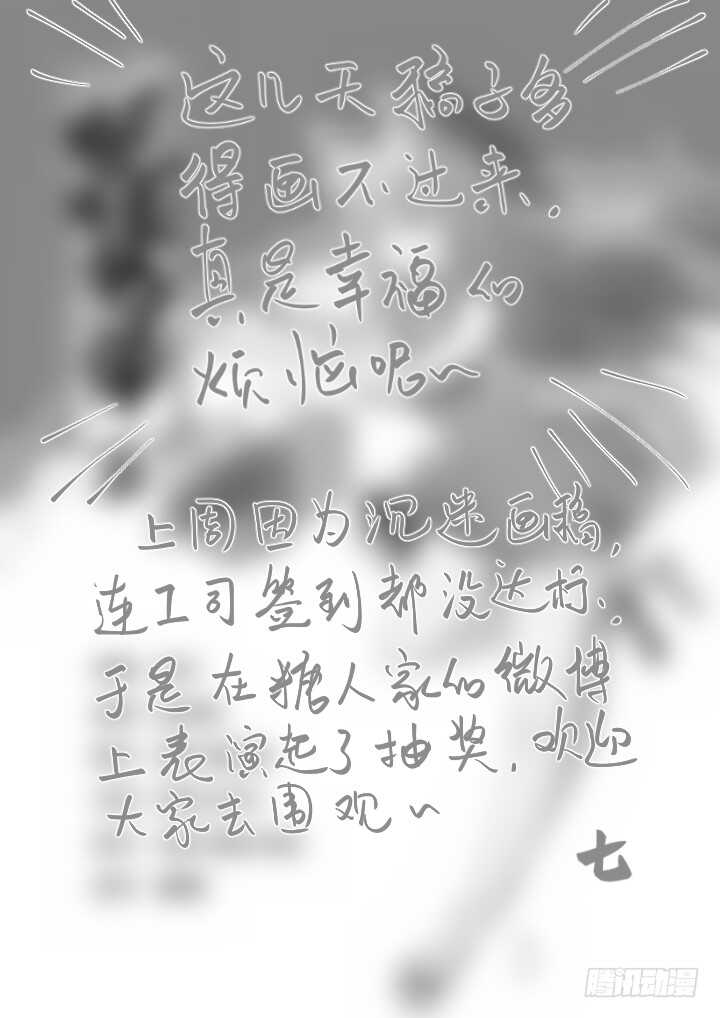 这几天稿子多
得画不过来.
真是幸福的
烦恼呢~
上周因为沉迷画稿,
连公司签到都没达标..
于是在糖人家的微博
上表演起了抽奖.欢迎
大家去围观~
七
腾讯动漫